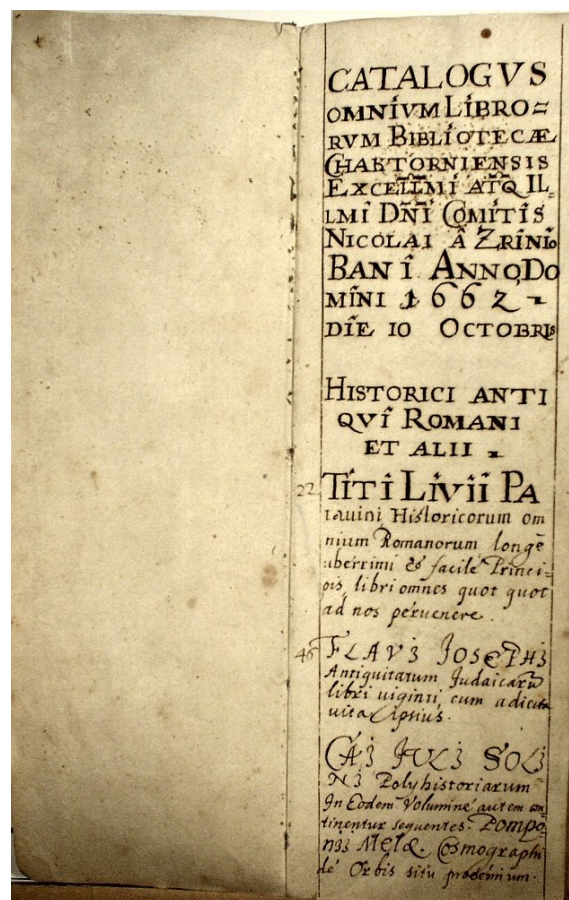 CATALOGVS
OMNIVM LIBRO=
RVM BIBLIOTECÆ
CHAKTORNIENSIS
EXCELLMI ATQ IL=
LMI DNI COMITIS
NICOLAI Â ZRINIO
BANI ANNO DO
MINI 1662
DIE 10 OCTOBRIS
HISTORICI ANTI
QVI ROMANI
ET ALII
22 TITI LIVII PA
tauini Historicorum om
nium Romanorum longè
uberrimi & facilè Princi=
pis, libri omnes quot quot
ad nos peruenere.
46 FLAVIJ IOSEPHI
Antiquitatum Judaicarũ
libri uiginti, cum adiecta
uita ipsius.
CAIJ IULIJ SOLI
NIJ Polyhistoriarum
In Eodem Volumine autem con
tinentur sequentes. Pompo
nij Melæ. Cosmographi
dè Orbis situ proemium.